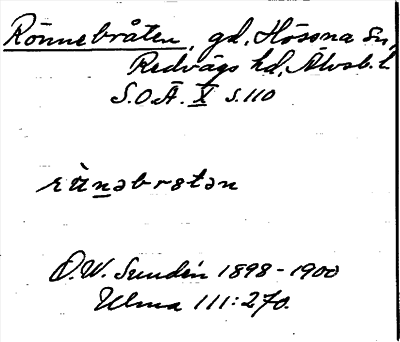 Rönnebråten, gd, Hössna sn,
Redvägs hd, Älvsb. l.
S.O.Ä. X s. 110
rù̀nəbrɵtən
O.W. Sundén 1898-1900
Ulma 111:270.